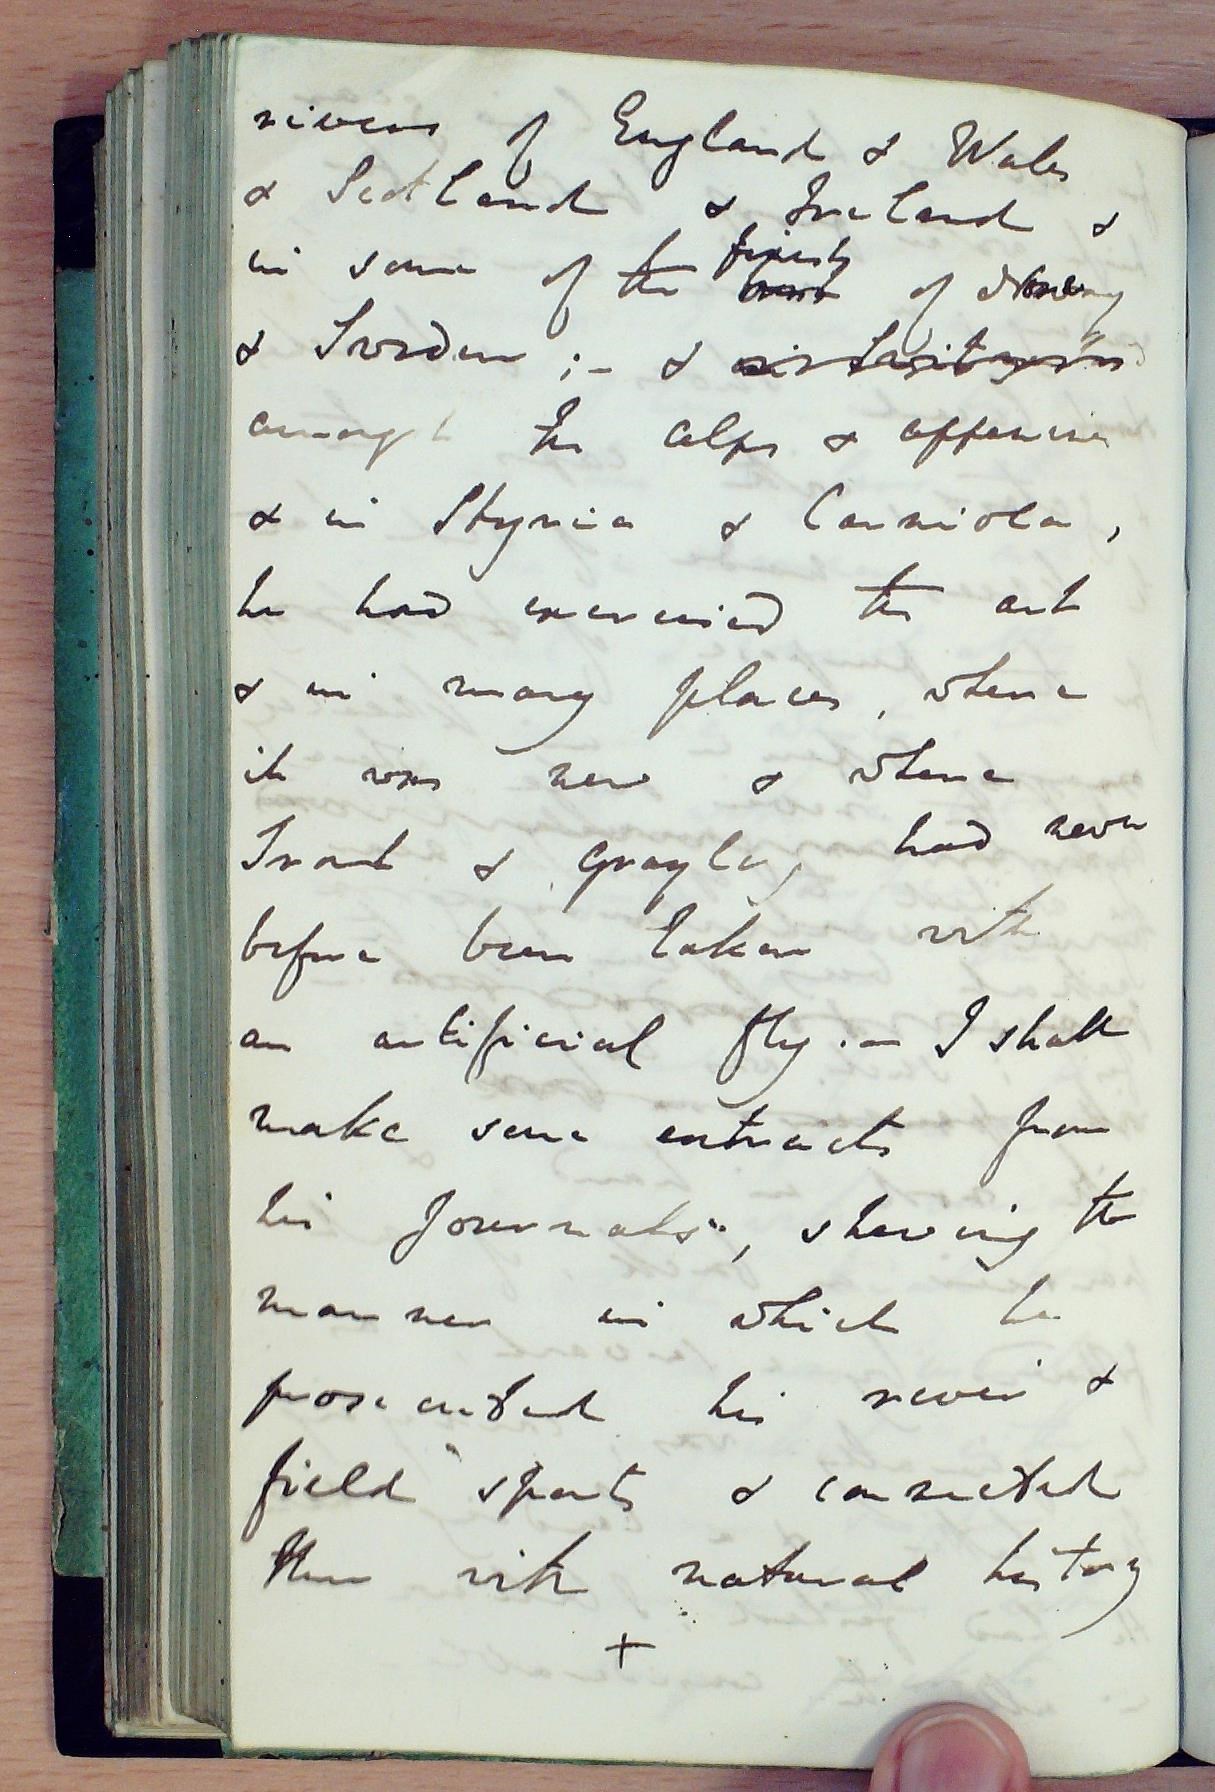 rivers of England & Wales
& Scotland & Ireland &
in some of the finest best of Norway
& Sweden ;- &
amongst the alps & appenines
& in Styria & Carniola,
he had exercised the art
& in many places, where
it was new & where
Trout & Grayling had never
before been taken with
an artificial fly. - I shall
make some extracts from
his Journals, shewing the
manner in which he
prosecuted his river &
field sports & connected
them with natural history
+